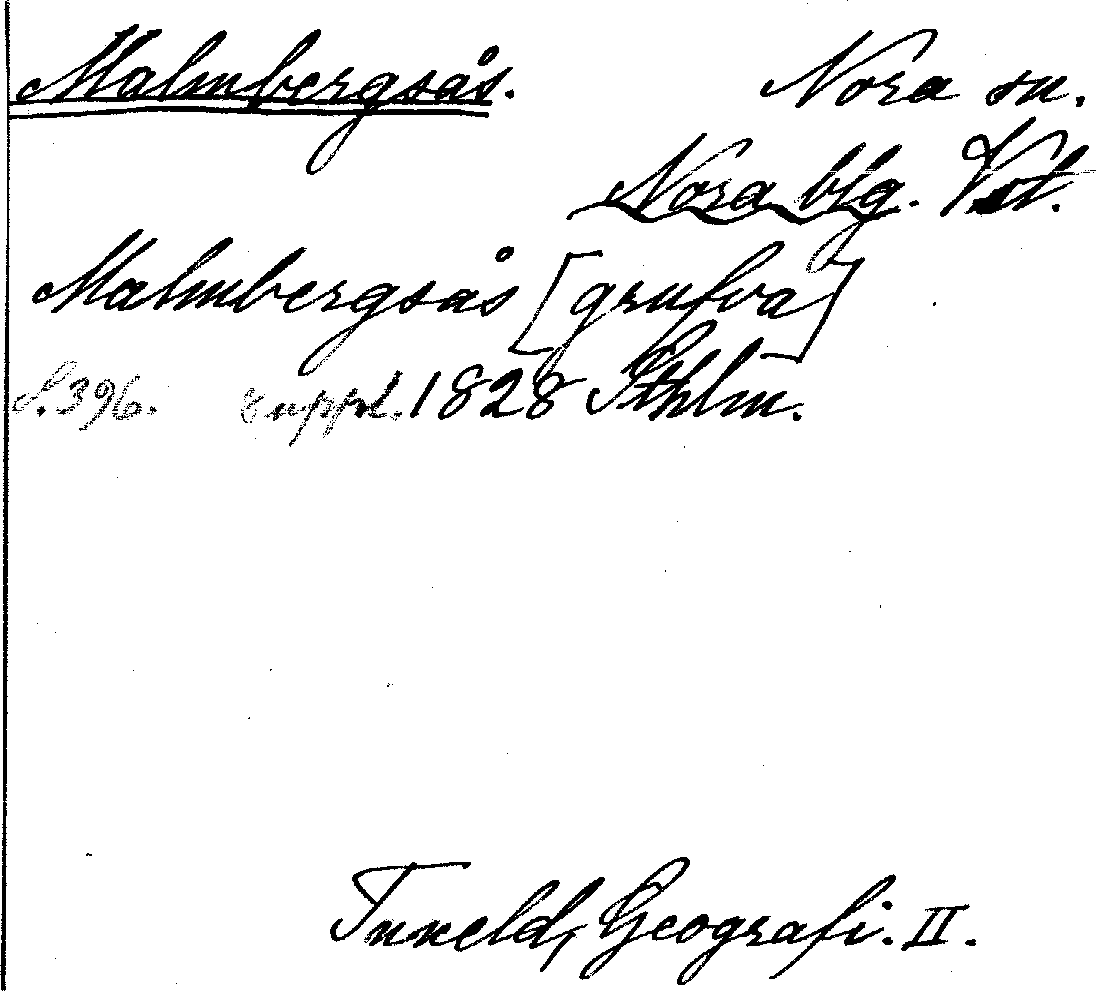 Malmbergsås. Nora sn.
Nora blg. Vstl.
Malmbergsås [grufva]
S. 396. 8 uppl. 1828 Sthlm.
Tuneld, Geografi. II.